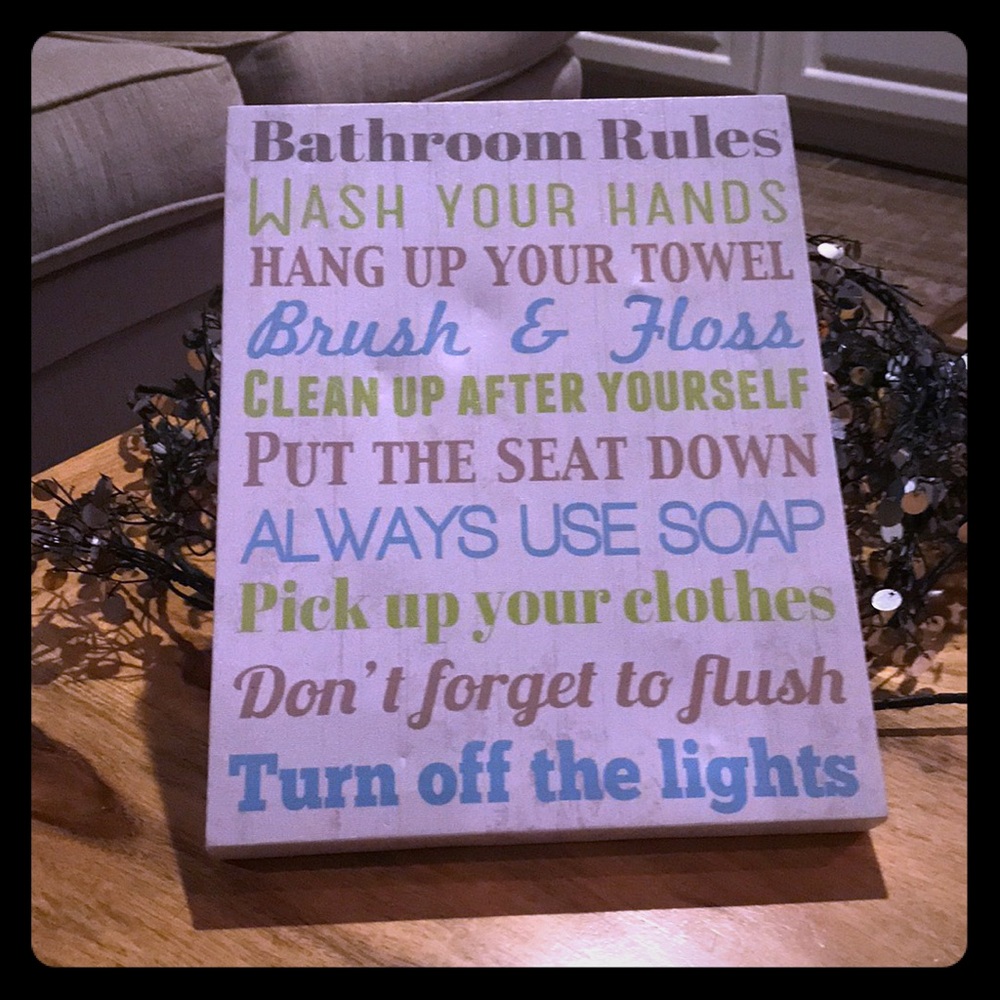 Bathroom Rules
WASH YOUR HANDS
HANG UP YOUR TOWEL
Brush & Floss
CLEAN UP AFTER YOURSELF
PUT THE SEAT DOWN
ALWAYS USE SOAP
Pick up your clothes
Don't forget to flush
Turn off the lights